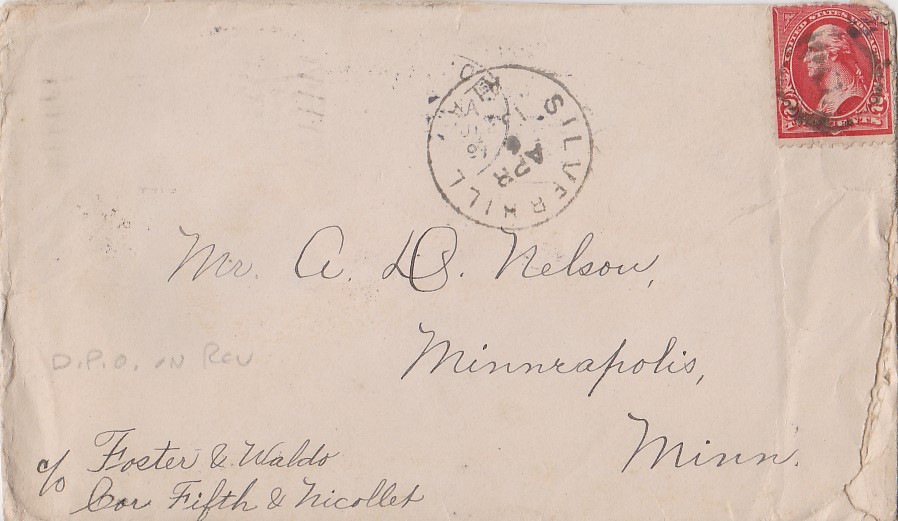 UNITED STATES POSTAGE
2 2
TWO CENTS
SILVERHILL
APR
Mr. A. D. Nelson,
Minneapolis,
Minn.
D.P.O. IN REV
c/o Foster & Waldo
Cor Fifth & Nicollet